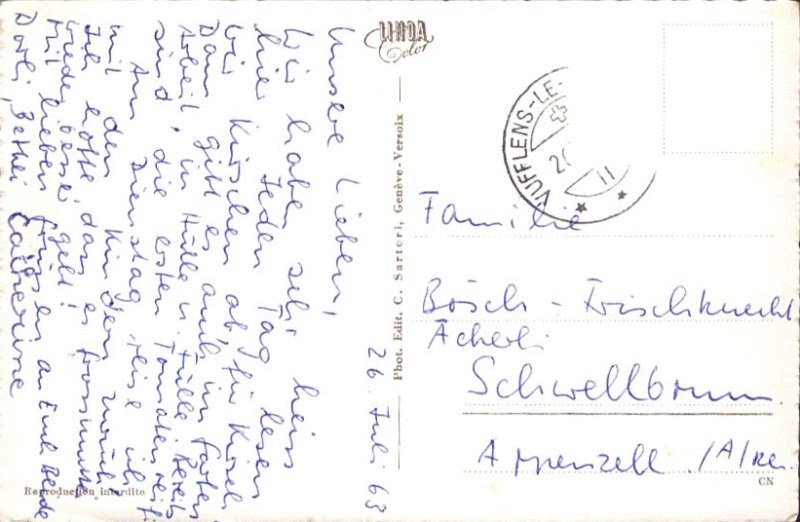 26. Juli 63
Unsere Lieben,
Wir haben sehr heiss
hier. Jeden Tag lesen
wir Kirschen ab, für Kirsch.
Dann gibt es auch im Garten
Arbeit, in Hülle u. Fülle. Bereits
sind die ersten Tomaten reif.
Am Dienstag reise ich
mit den Kindern zurück.
Ich hoffe dass es Grossmutter
wieder besser geht!
Mit lieben Grüssen an Euch beide
Dorli, Bethli
Catherine
LINDA
Color
Phot. Edit. C. Sartori, Genève-Versoix
Reproduction interdite
VUFFLENS-LE-
11
Familie
Bösch - Frischknecht
Ächerli
Schwellbrunn.
Appenzell /A/Rh.
CN